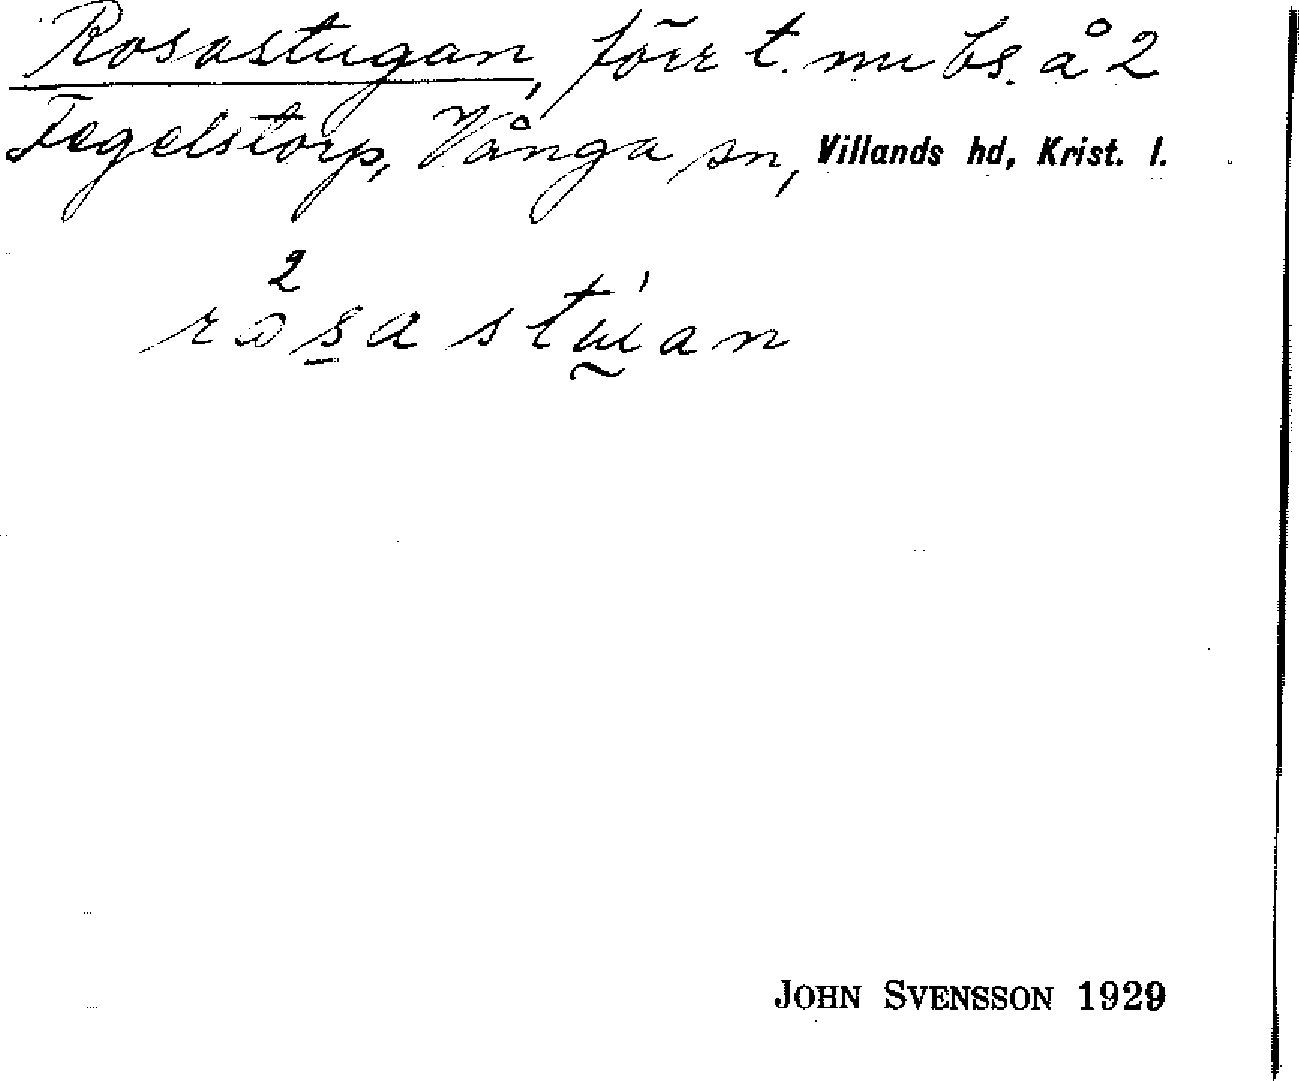 Rosastugan, förr t. nu bs. å 2
Tegelstorp, Vånga sn, Villands hd, Krist. l.
2
rosa stuian
JOHN SVENSSON 1929